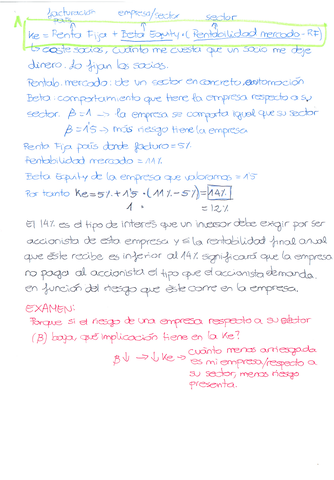 facturación empresa/sector sector
país
Ke = Renta Fija + Beta Equity · (Rentabilidad mercado - RF)
↳ coste socios, cuánto me cuesta que un socio me deje
dinero. Lo fijan los socios.
Rentab. mercado: de un sector en concreto, automoción
Beta: comportamiento que tiene la empresa respecto a su
sector. β=1 → la empresa se comporta igual que su sector
β=1'5 → más riesgo tiene la empresa
Renta Fija país donde facturo = 5%
Rentabilidad mercado = 11%
Beta Equity de la empresa que valoramos = 1'5
Por tanto Ke = 5% + 1'5 · (11% - 5%) = 14%
1 = 12%
El 14% es el tipo de interés que un inversor debe exigir por ser
accionista de esta empresa y si la rentabilidad final anual
que éste recibe es inferior al 14% significará que la empresa
no paga al accionista el tipo que el accionista demanda
en función del riesgo que este corre en la empresa.
EXAMEN:
Porque si el riesgo de una empresa respecto a su sector
(β) baja, qué implicación tiene en la Ke?
β↓ → ↓Ke → Cuánto menos arriesgada
es mi empresa/respecto a
su sector, menos riesgo
presenta.